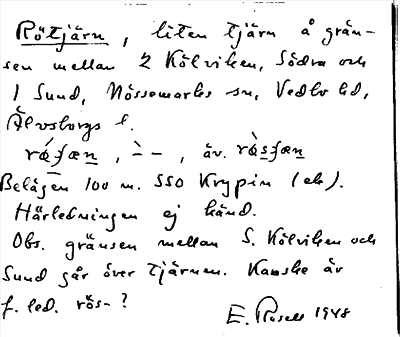 Rötjärn, liten tjärn å grän-
sen mellan 2 Kölviken, Södra och
1 Sund, Nössemarks sn, Vedbo hd,
Älvsborgs l.
ráʃæn, – ̀ –, äv. ràsʃæn
Belägen 100 m. SSO Krypin (eb).
Härledningen ej känd.
Obs. gränsen mellan S. Kölviken och
Sund går över tjärnen. Kanske är
f. led. rös-?
E. Rosell 1948